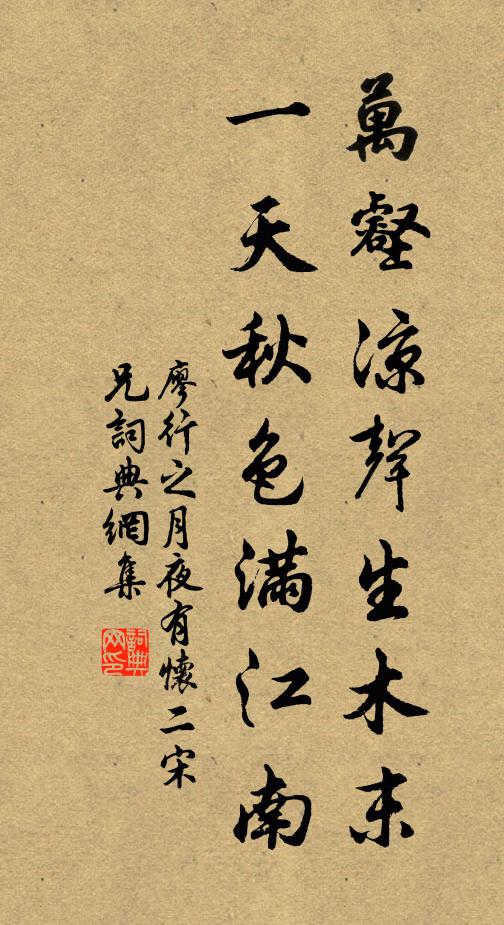 萬壑涼聲生木末
一天秋色滿江南
廖行之月夜有懷二宋
兄詞典網集
詞典
网印